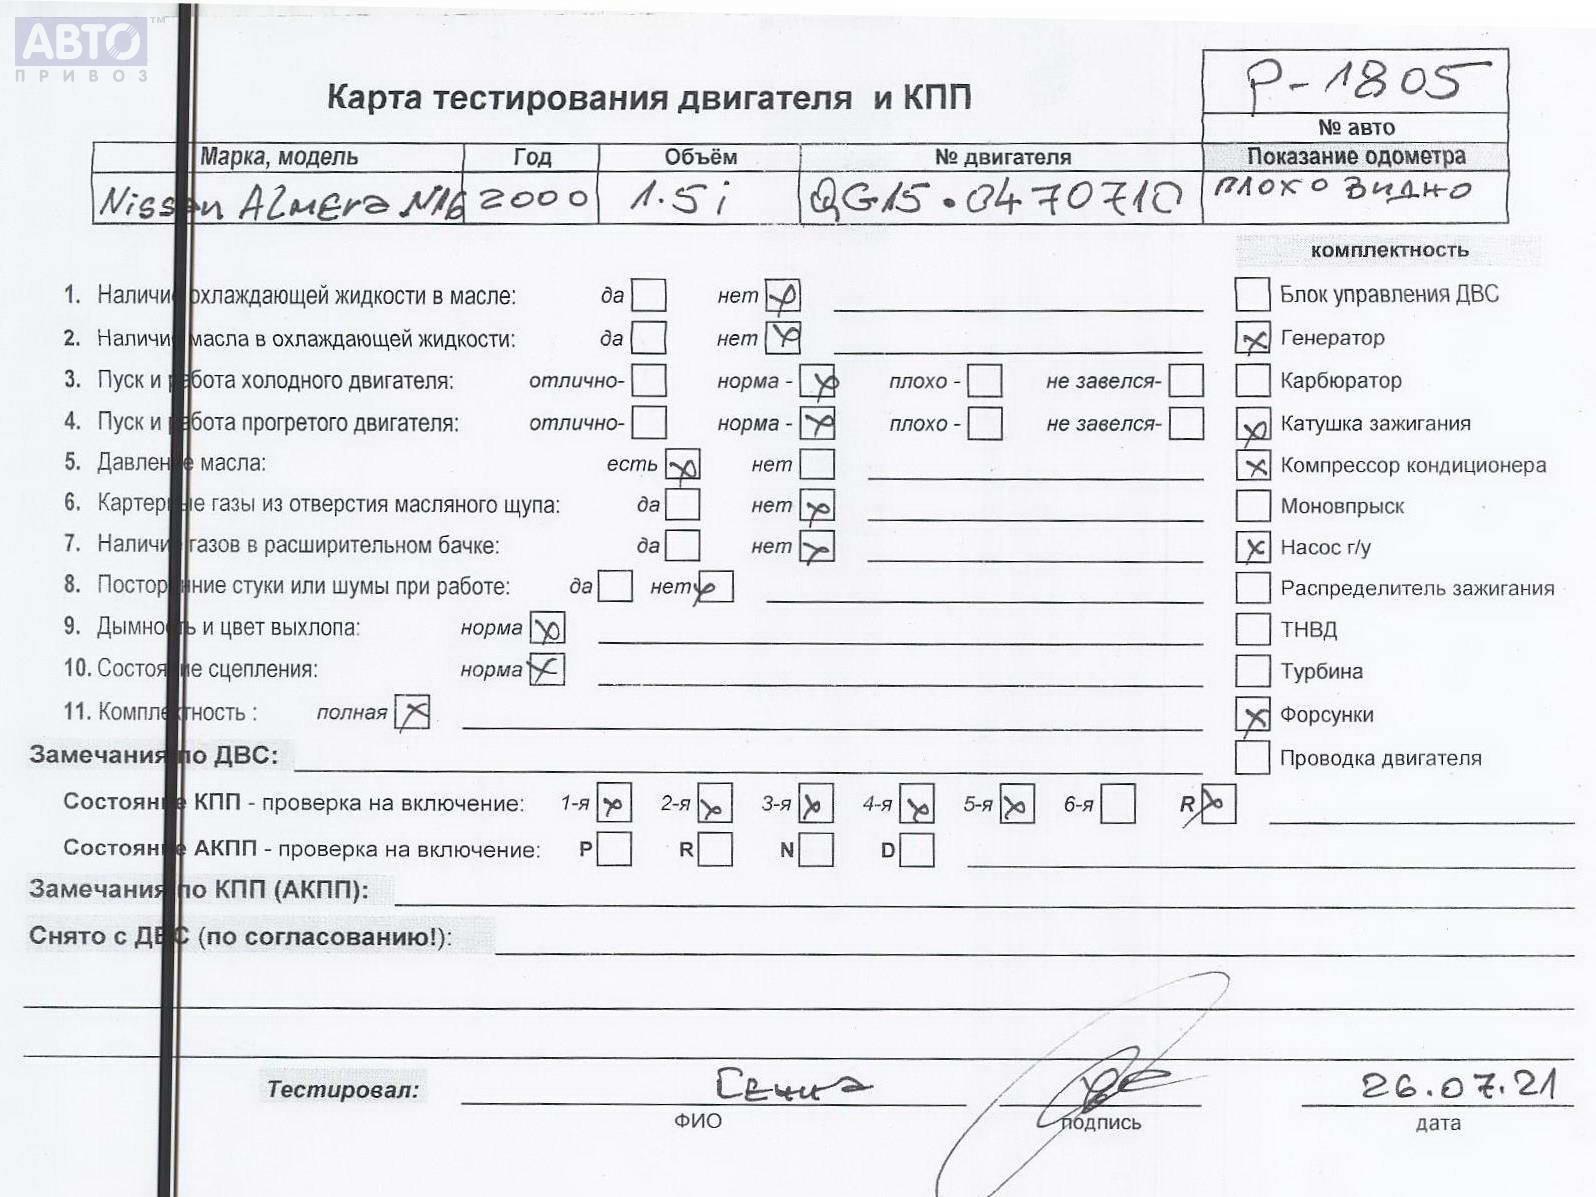 АВТО™
ПРИВОЗ
Карта тестирования двигателя и КПП
P-1805
№ авто
Марка, модель Год Объём № двигателя Показание одометра
Nissan Almera N16 2000 1.5i QG15.0470710 плохо видно
комплектность
1. Наличие охлаждающей жидкости в масле: да нет Блок управления ДВС
2. Наличие масла в охлаждающей жидкости: да нет Генератор
3. Пуск и работа холодного двигателя: отлично- норма - плохо - не завелся- Карбюратор
4. Пуск и работа прогретого двигателя: отлично- норма - плохо - не завелся- Катушка зажигания
5. Давление масла: есть нет Компрессор кондиционера
6. Картерные газы из отверстия масляного щупа: да нет Моновпрыск
7. Наличие газов в расширительном бачке: да нет Насос г/у
8. Посторонние стуки или шумы при работе: да нет Распределитель зажигания
9. Дымность и цвет выхлопа: норма ТНВД
10. Состояние сцепления: норма Турбина
11. Комплектность : полная Форсунки
Замечания по ДВС: Проводка двигателя
Состояние КПП - проверка на включение: 1-я 2-я 3-я 4-я 5-я 6-я R
Состояние АКПП - проверка на включение: P R N D
Замечания по КПП (АКПП):
Снято с ДВС (по согласованию!):
Тестировал: 26.07.21
ФИО подпись дата